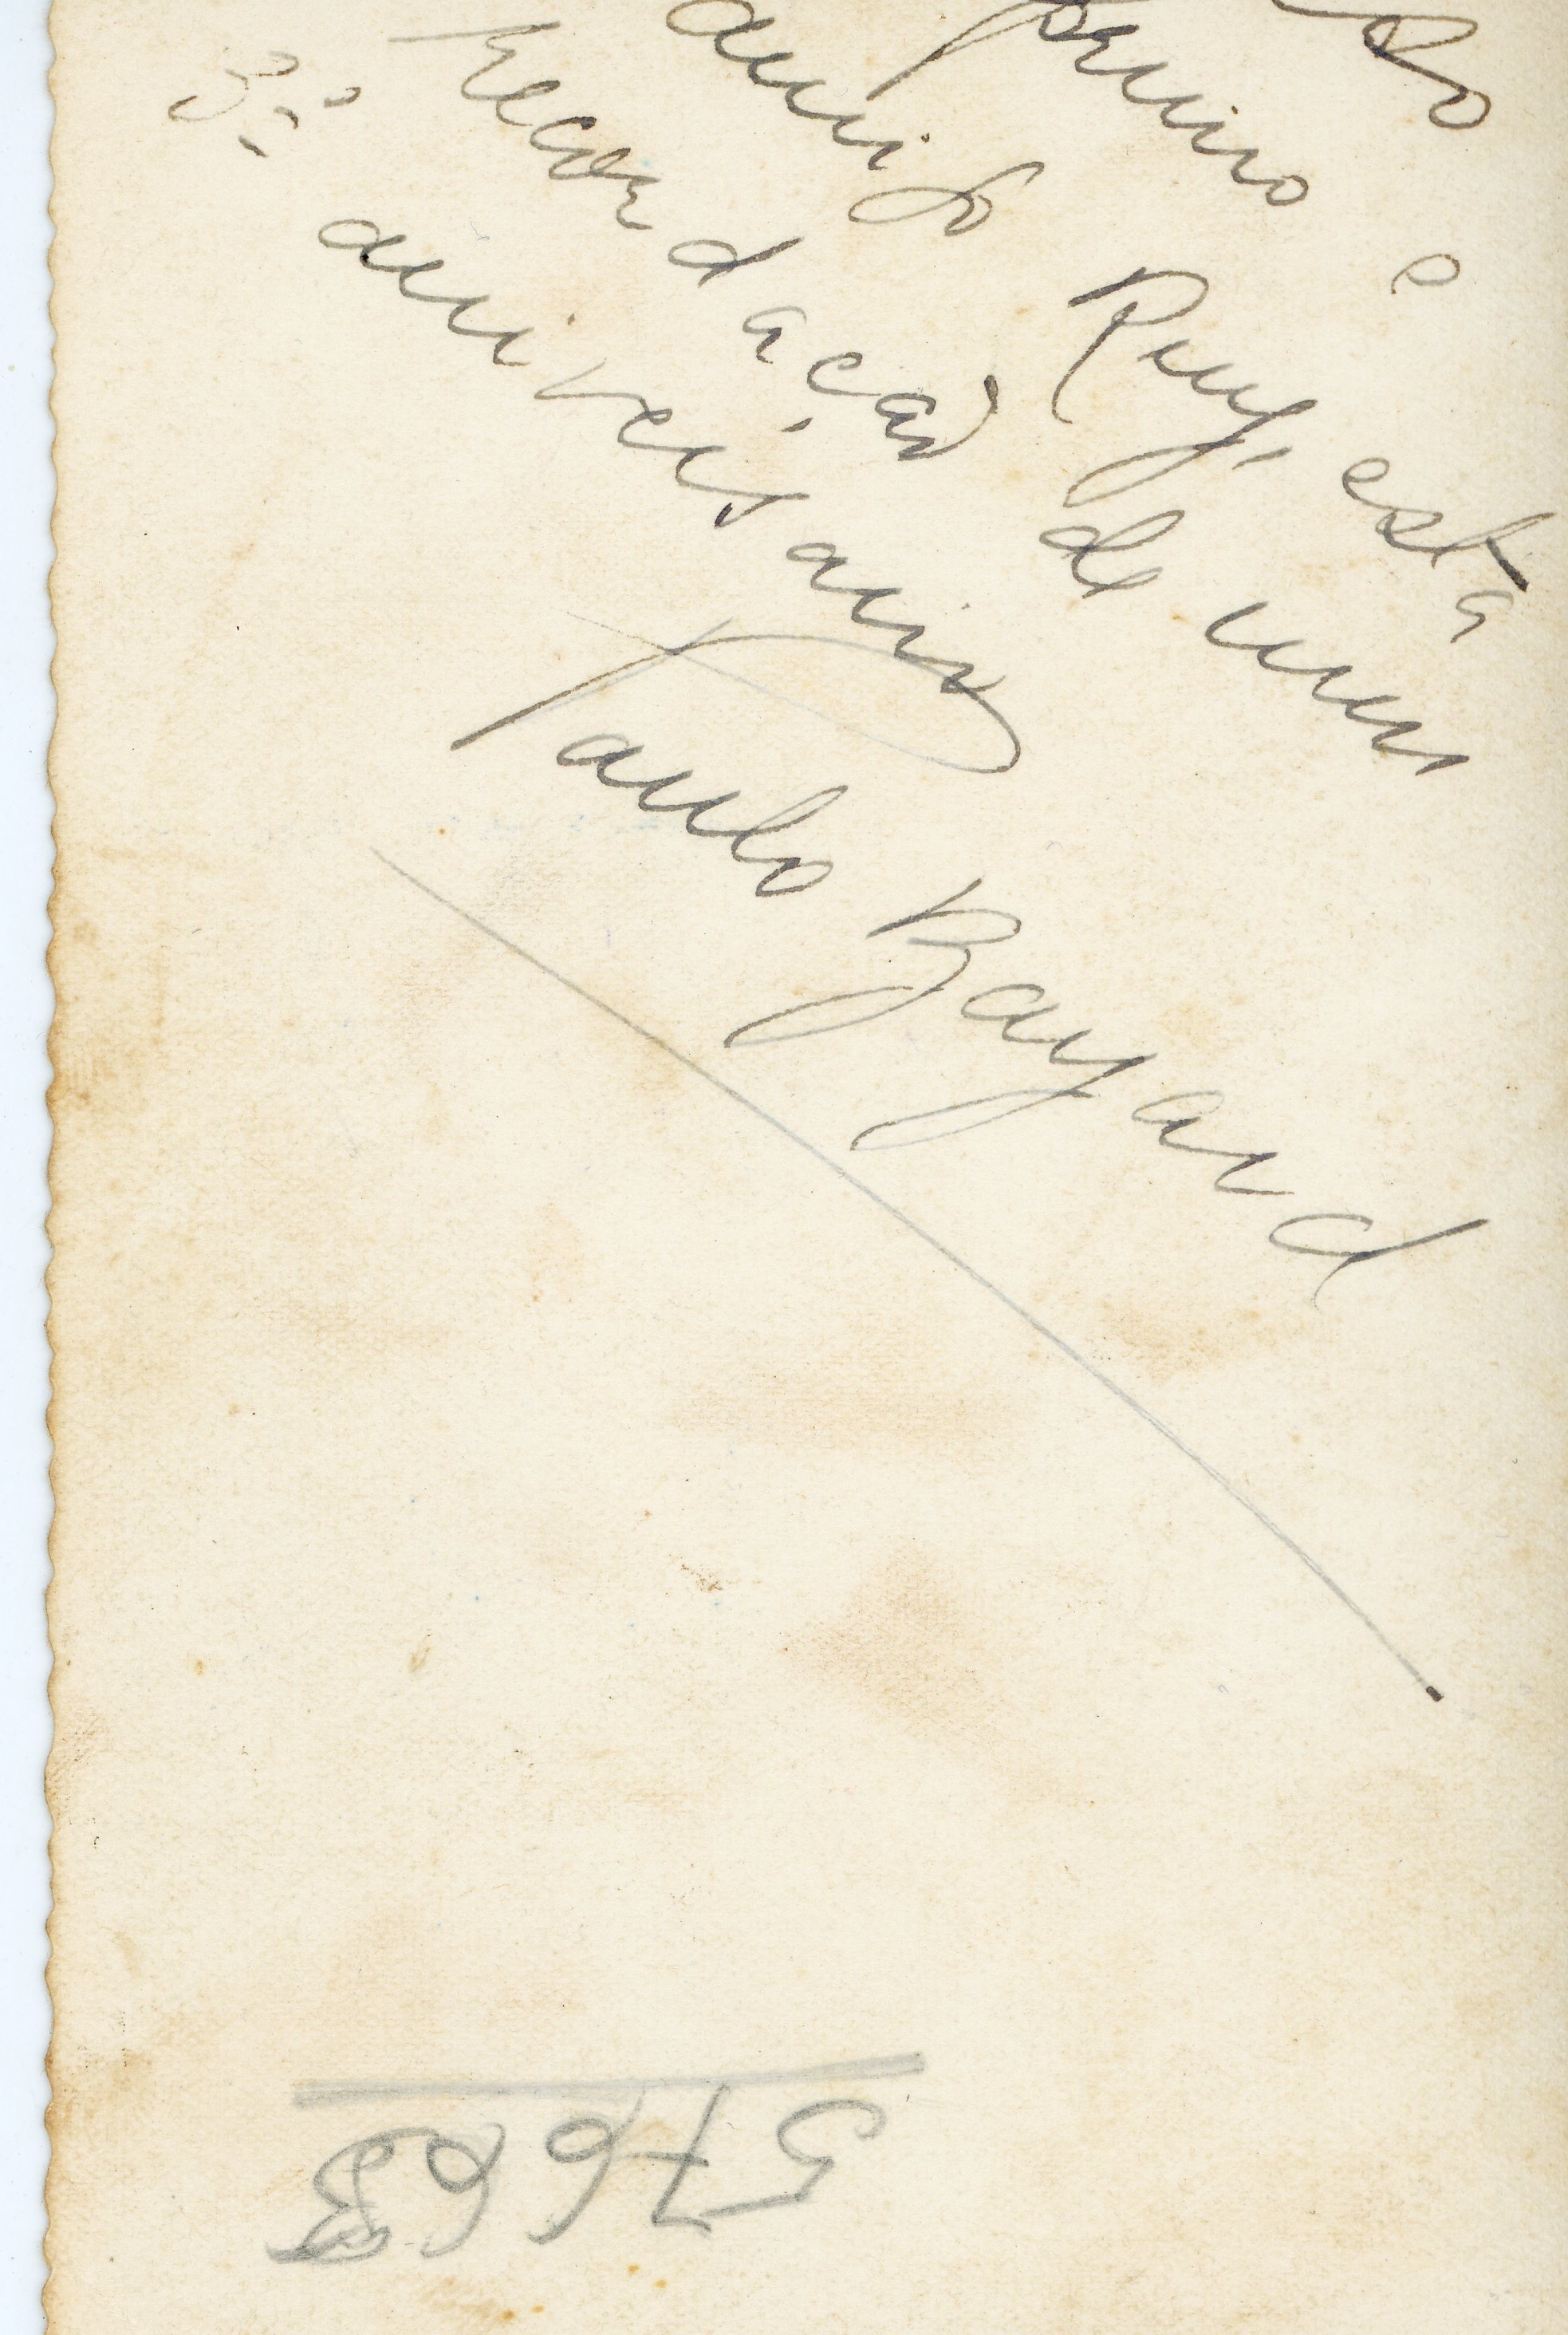 primo e
amigo Ruy, esta
recordação de um
aniversario
Paulo Bayard
57663